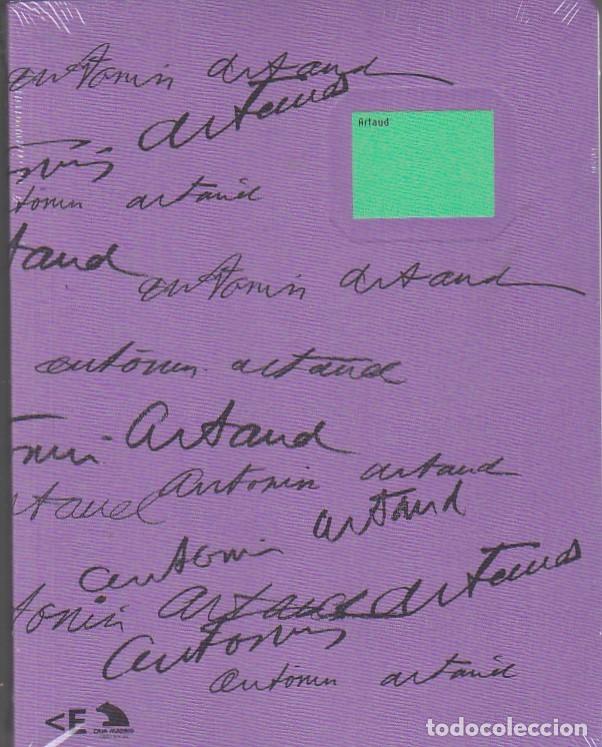 antonin artaud
artaud
Artaud
antonin artaud
taud
antonin artaud
antonin artaud
onin Artaud
antonin artaud
artaud
artaud
antonin
tonin artaud
antonin
antonin artaud
<E
CAJA MADRID
OBRA SOCIAL
todocoleccion